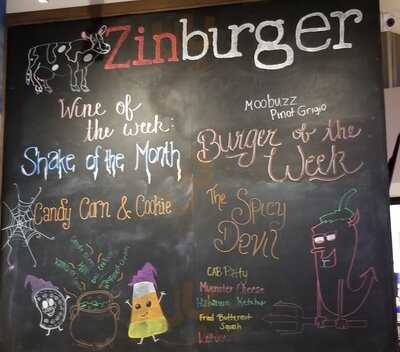 Zinburger
Wine of
the week:
Moobuzz
Pinot Grigio
Shake of the Month
Candy Corn & Cookie
Burger of the
Week
The Spicy
Devil
CAB Patty
Muenster Cheese
Habanero Ketchup
Fried Butternut
Squash